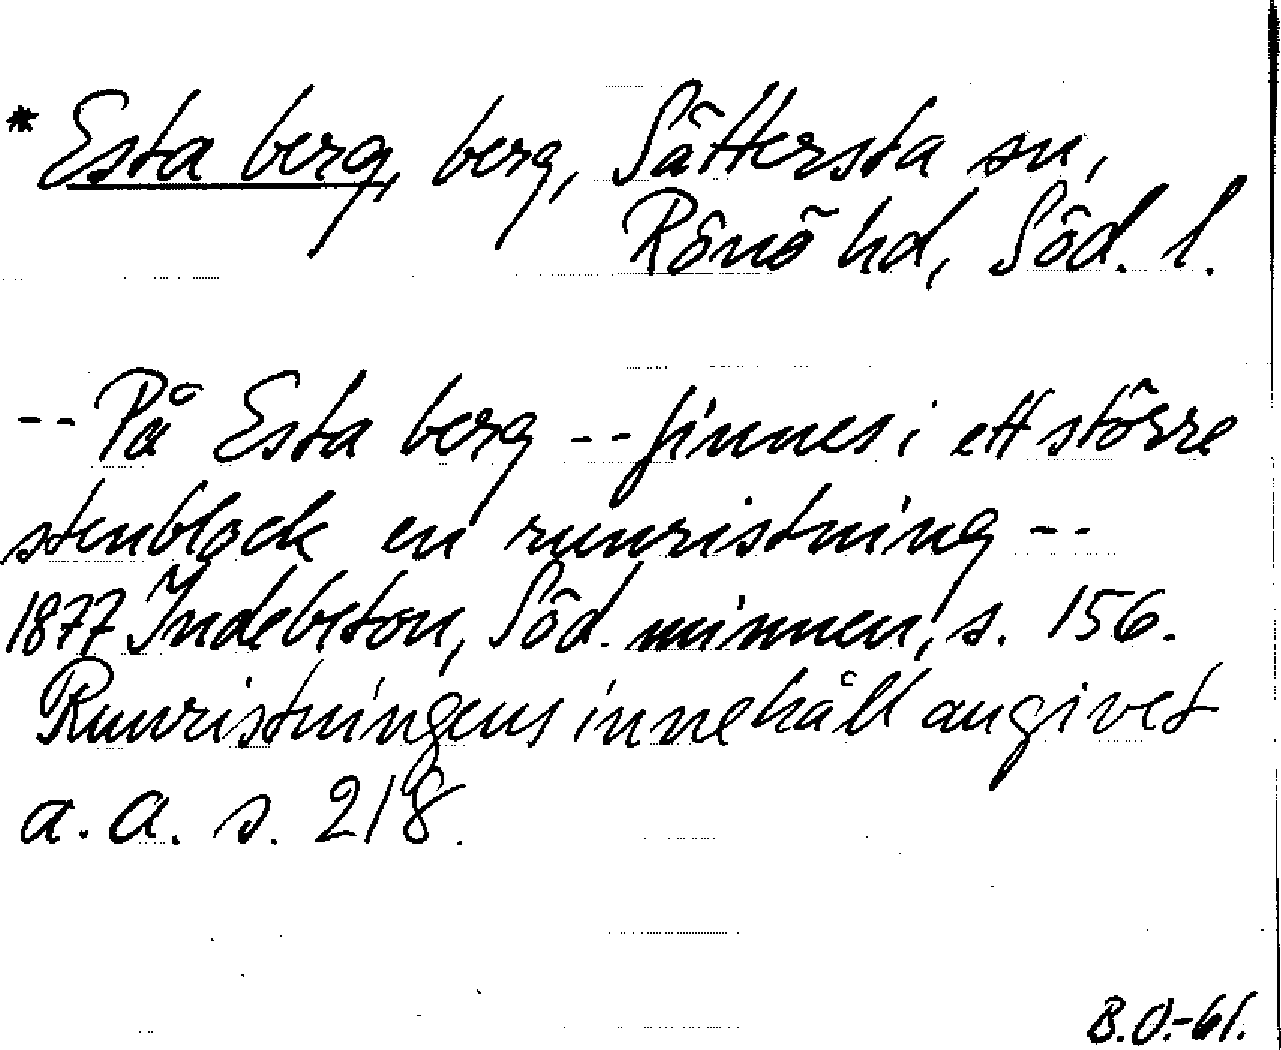 * Esta berg, berg, Sättersta sn,
Rönö hd, Söd. l.
-- På Esta berg -- finnes i ett större
stenblock en runristning --
1877 Indebetou, Söd. minnen, s. 156.
Runristningens innehåll angivet
a. a. s. 218.
B.O.-61.